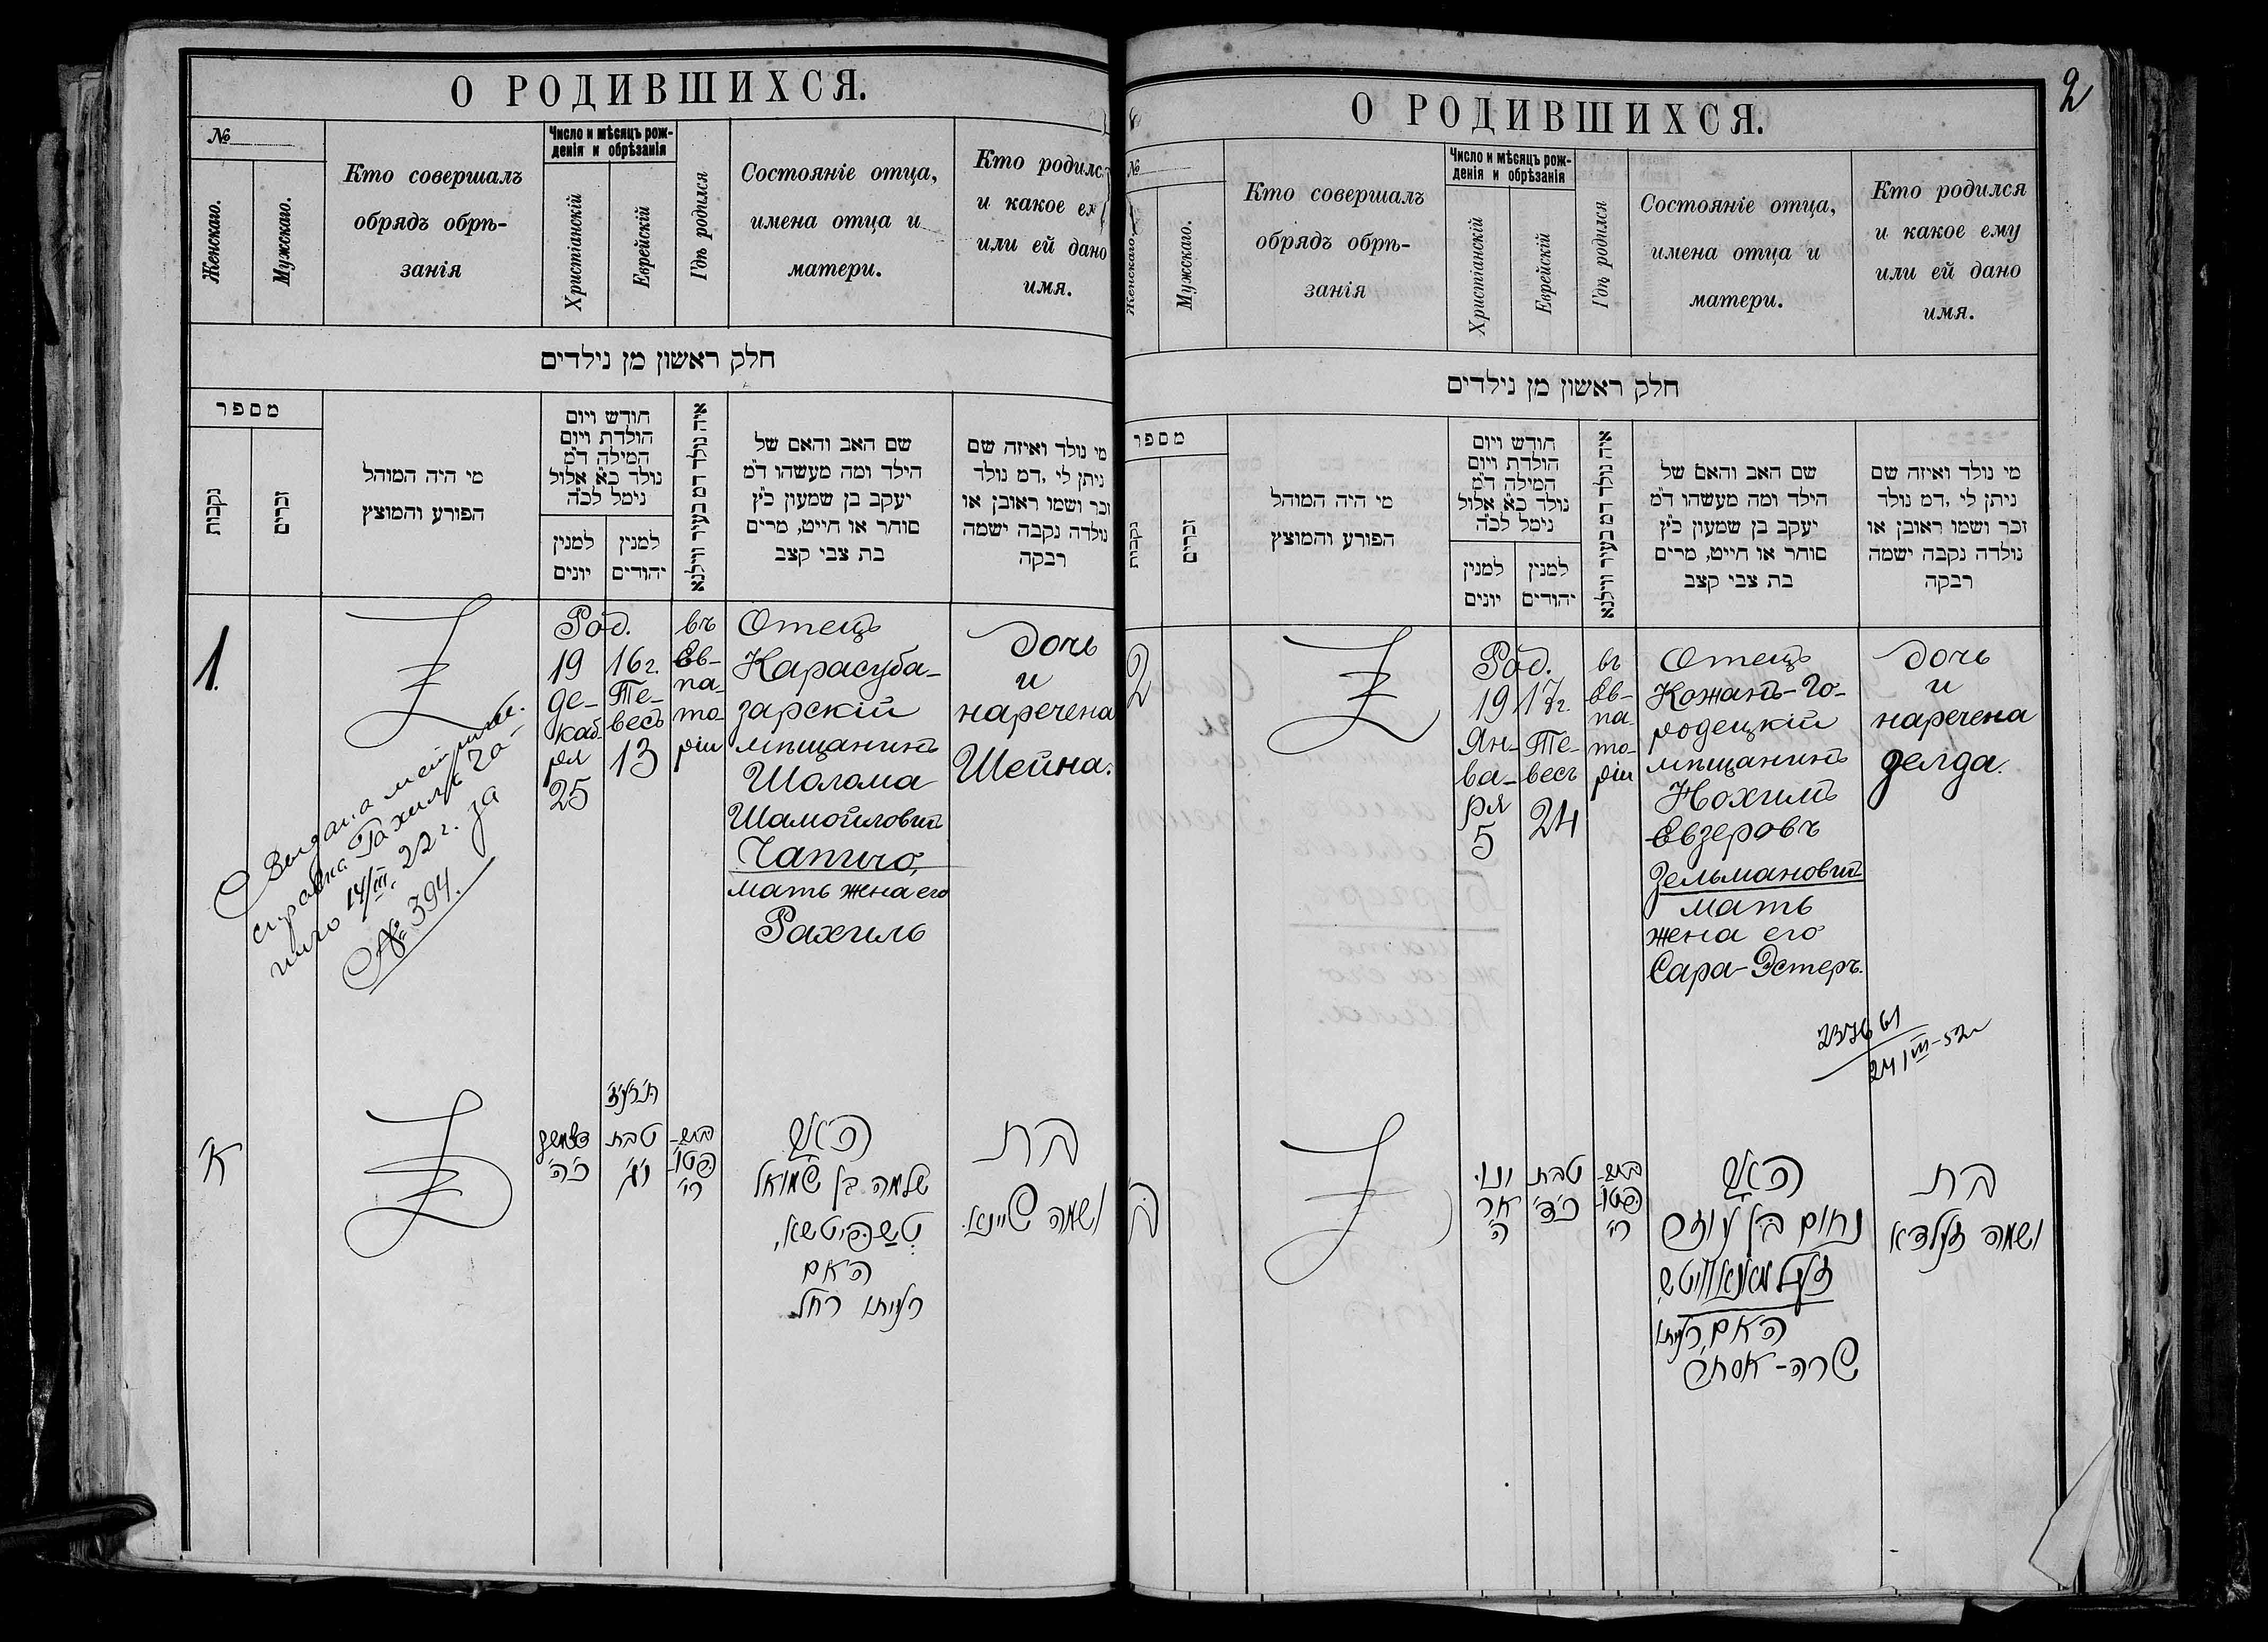 О РОДИВШИХСЯ.
№
Женскаго.
Мужскаго.
Кто совершалъ
обрядъ обрѣ-
занія
Число и мѣсяцъ рож-
денія и обрѣзанія
Христіанскій
Еврейскій
Гдѣ родился
Состояніе отца,
имена отца и
матери.
Кто родилс
и какое ем
или ей дано
имя.
חלק ראשון מן נילדים
מספר
נקבות
זכרים
מי היה המוהל
הפורע והמוצץ
חודש ויום
הולדת ויום
המילה ד"מ
נולד כ"א אלול
נימל לכ"ה
למנין
יונים
למנין
יהודים
איה נולד דמ בעיר ווילנא
שם האב והאם של
הילד ומה מעשהו ד"מ
יעקב בן שמעון כ"ץ
סוחר או חייט, מרים
בת צבי קצב
מי נולד ואיזה שם
ניתן לי, דמ נולד
זכר ושמו ראובן או
נולדה נקבה ישמה
רבקה
1.
Род.
19 16 г.
де-
каб
ря
25
Те-
весъ
13
въ
Ев-
па-
то-
ріи
Отецъ
Карасуба-
зарскій
мѣщанинъ
Шолома
Шамойлович
Чапичо,
мать жена его
Рахиль
дочь
и
наречена
Шейна.
Выдана метрич.
справка Рахиль Ча-
пичо 14/III. 22 г. за
№ 394.
א'
כ"ה'
טבת
י"ג'
האב
שלמה בן שמואל
האם
רעיתו רחל
בת
ושמה שיינא.
2
О РОДИВШИХСЯ.
№
Женскаго.
Мужскаго.
Кто совершалъ
обрядъ обрѣ-
занія
Число и мѣсяцъ рож-
денія и обрѣзанія
Христіанскій
Еврейскій
Гдѣ родился
Состояніе отца,
имена отца и
матери.
Кто родился
и какое ему
или ей дано
имя.
חלק ראשון מן נילדים
מספר
נקבות
זכרים
מי היה המוהל
הפורע והמוצץ
חודש ויום
הולדת ויום
המילה ד"מ
נולד כ"א אלול
נימל לכ"ה
למנין
יונים
למנין
יהודים
איה נולד דמ בעיר ווילנא
שם האב והאם של
הילד ומה מעשהו ד"מ
יעקב בן שמעון כ"ץ
סוחר או חייט, מרים
בת צבי קצב
מי נולד ואיזה שם
ניתן לי, דמ נולד
זכר ושמו ראובן או
נולדה נקבה ישמה
רבקה
2
Род.
19 17 г.
Ян-
ва-
ря
5
Те-
весъ
24
въ
Ев-
па-
то-
ріи
Отецъ
Кожанъ-Го-
родецкій
мѣщанинъ
Нохимъ
Евзеровъ
Зельманович
мать
жена его
Сара-Эстеръ.
дочь
и
наречена
Зелда.
237661
24/III-52
ב'
ינו
אר
ה'
טבת
כ"ד'
האב
נחום בן עוזר
זעלמאנאוויטש
האם רעיתו
שרה-אסתר
בת
ושמה זעלדא